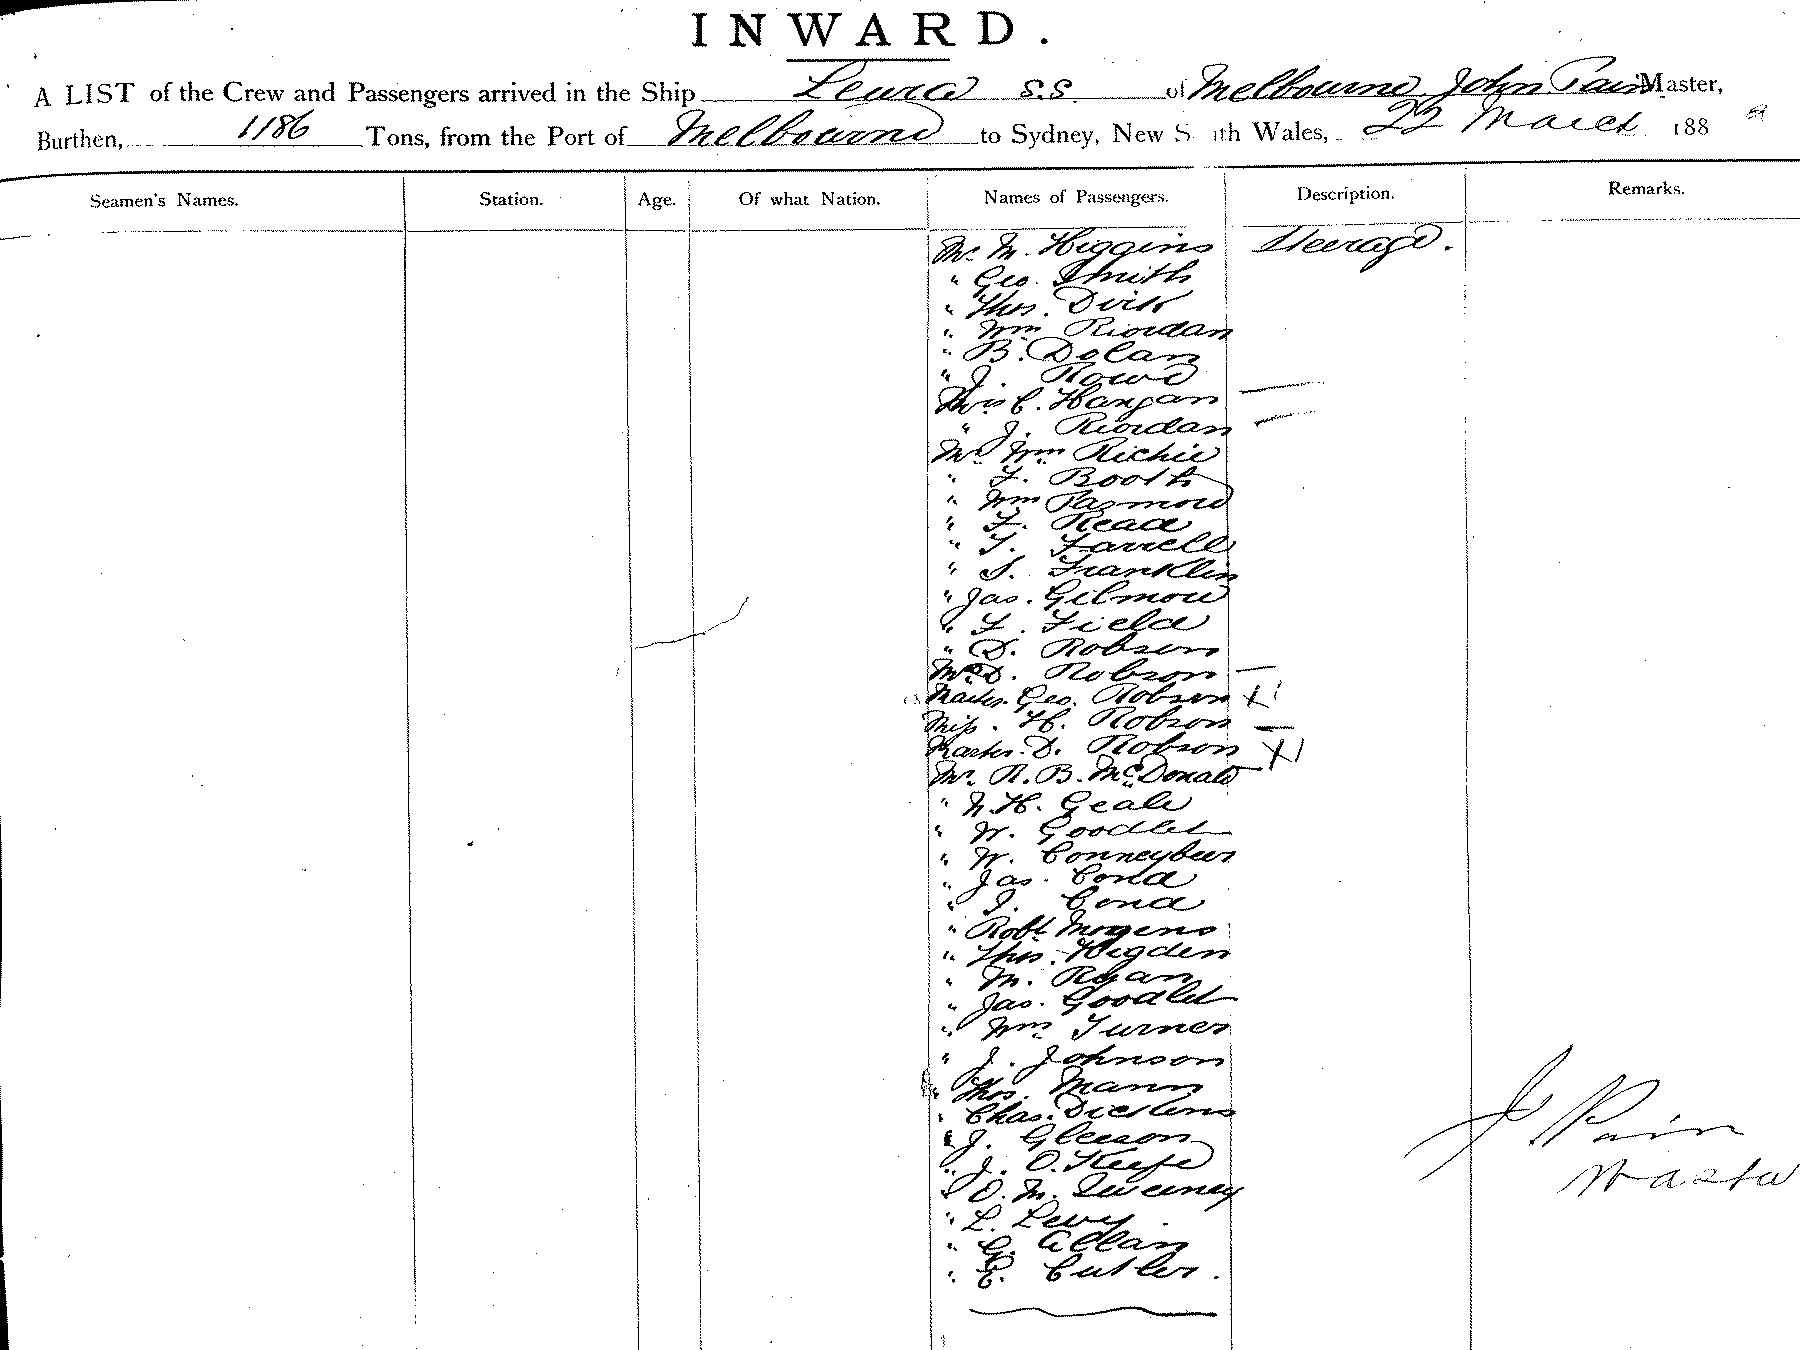 INWARD.
A LIST of the Crew and Passengers arrived in the Ship Leura S.S. of Melbourne John Pain Master,
Burthen, 1186 Tons, from the Port of Melbourne to Sydney, New S th Wales, 22 March 188
Seamen's Names. Station. Age. Of what Nation. Names of Passengers. Description. Remarks.
Mr. M. Higgins Steerage.
" Geo. Smith
" Thos. Dick
" Wm Riordan
" B. Dolan
" J. Rowe
Mrs C. Hangan
" J. Riordan
Mr. Wm Richie
" F. Booth
" Wm Pasmore
" F. Read
" T. Farrell
" S. Franklin
" Jas. Gilmore
" F. Field
" D. Robson
Mrs D. Robson
Master. Geo. Robson X
Miss. H. Robson
Master. D. Robson X
Mr. R. B. McDonald
" N. H. Geale
" W. Goodlet
" W. Conneybeer
" Jas. Cond
" J. Cond
" Robt. Mogens
" Thos. Higden
" M. Ryan
" Jas. Goodlet
" Wm Turner
" J. Johnson
" Thos. Mann
" Chas. Dickens
" J. Gleeson
" J. O.Keefe
" O. M. Sweeney
" L. Levy
" G. Allan
" E. Cutler.
J Pain
Master